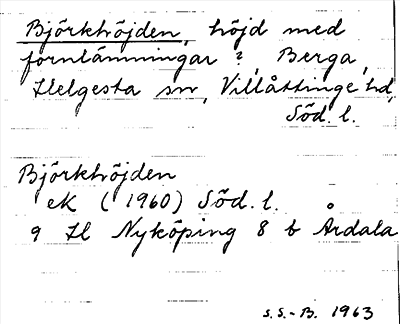 Björkhöjden, höjd med
fornlämningar?, Berga,
Helgesta sn, Villåttinge hd,
Söd. l.
Björkhöjden
ek (1960) Söd. l.
9 H Nyköping 8 b Årdala
S.S.-B. 1963